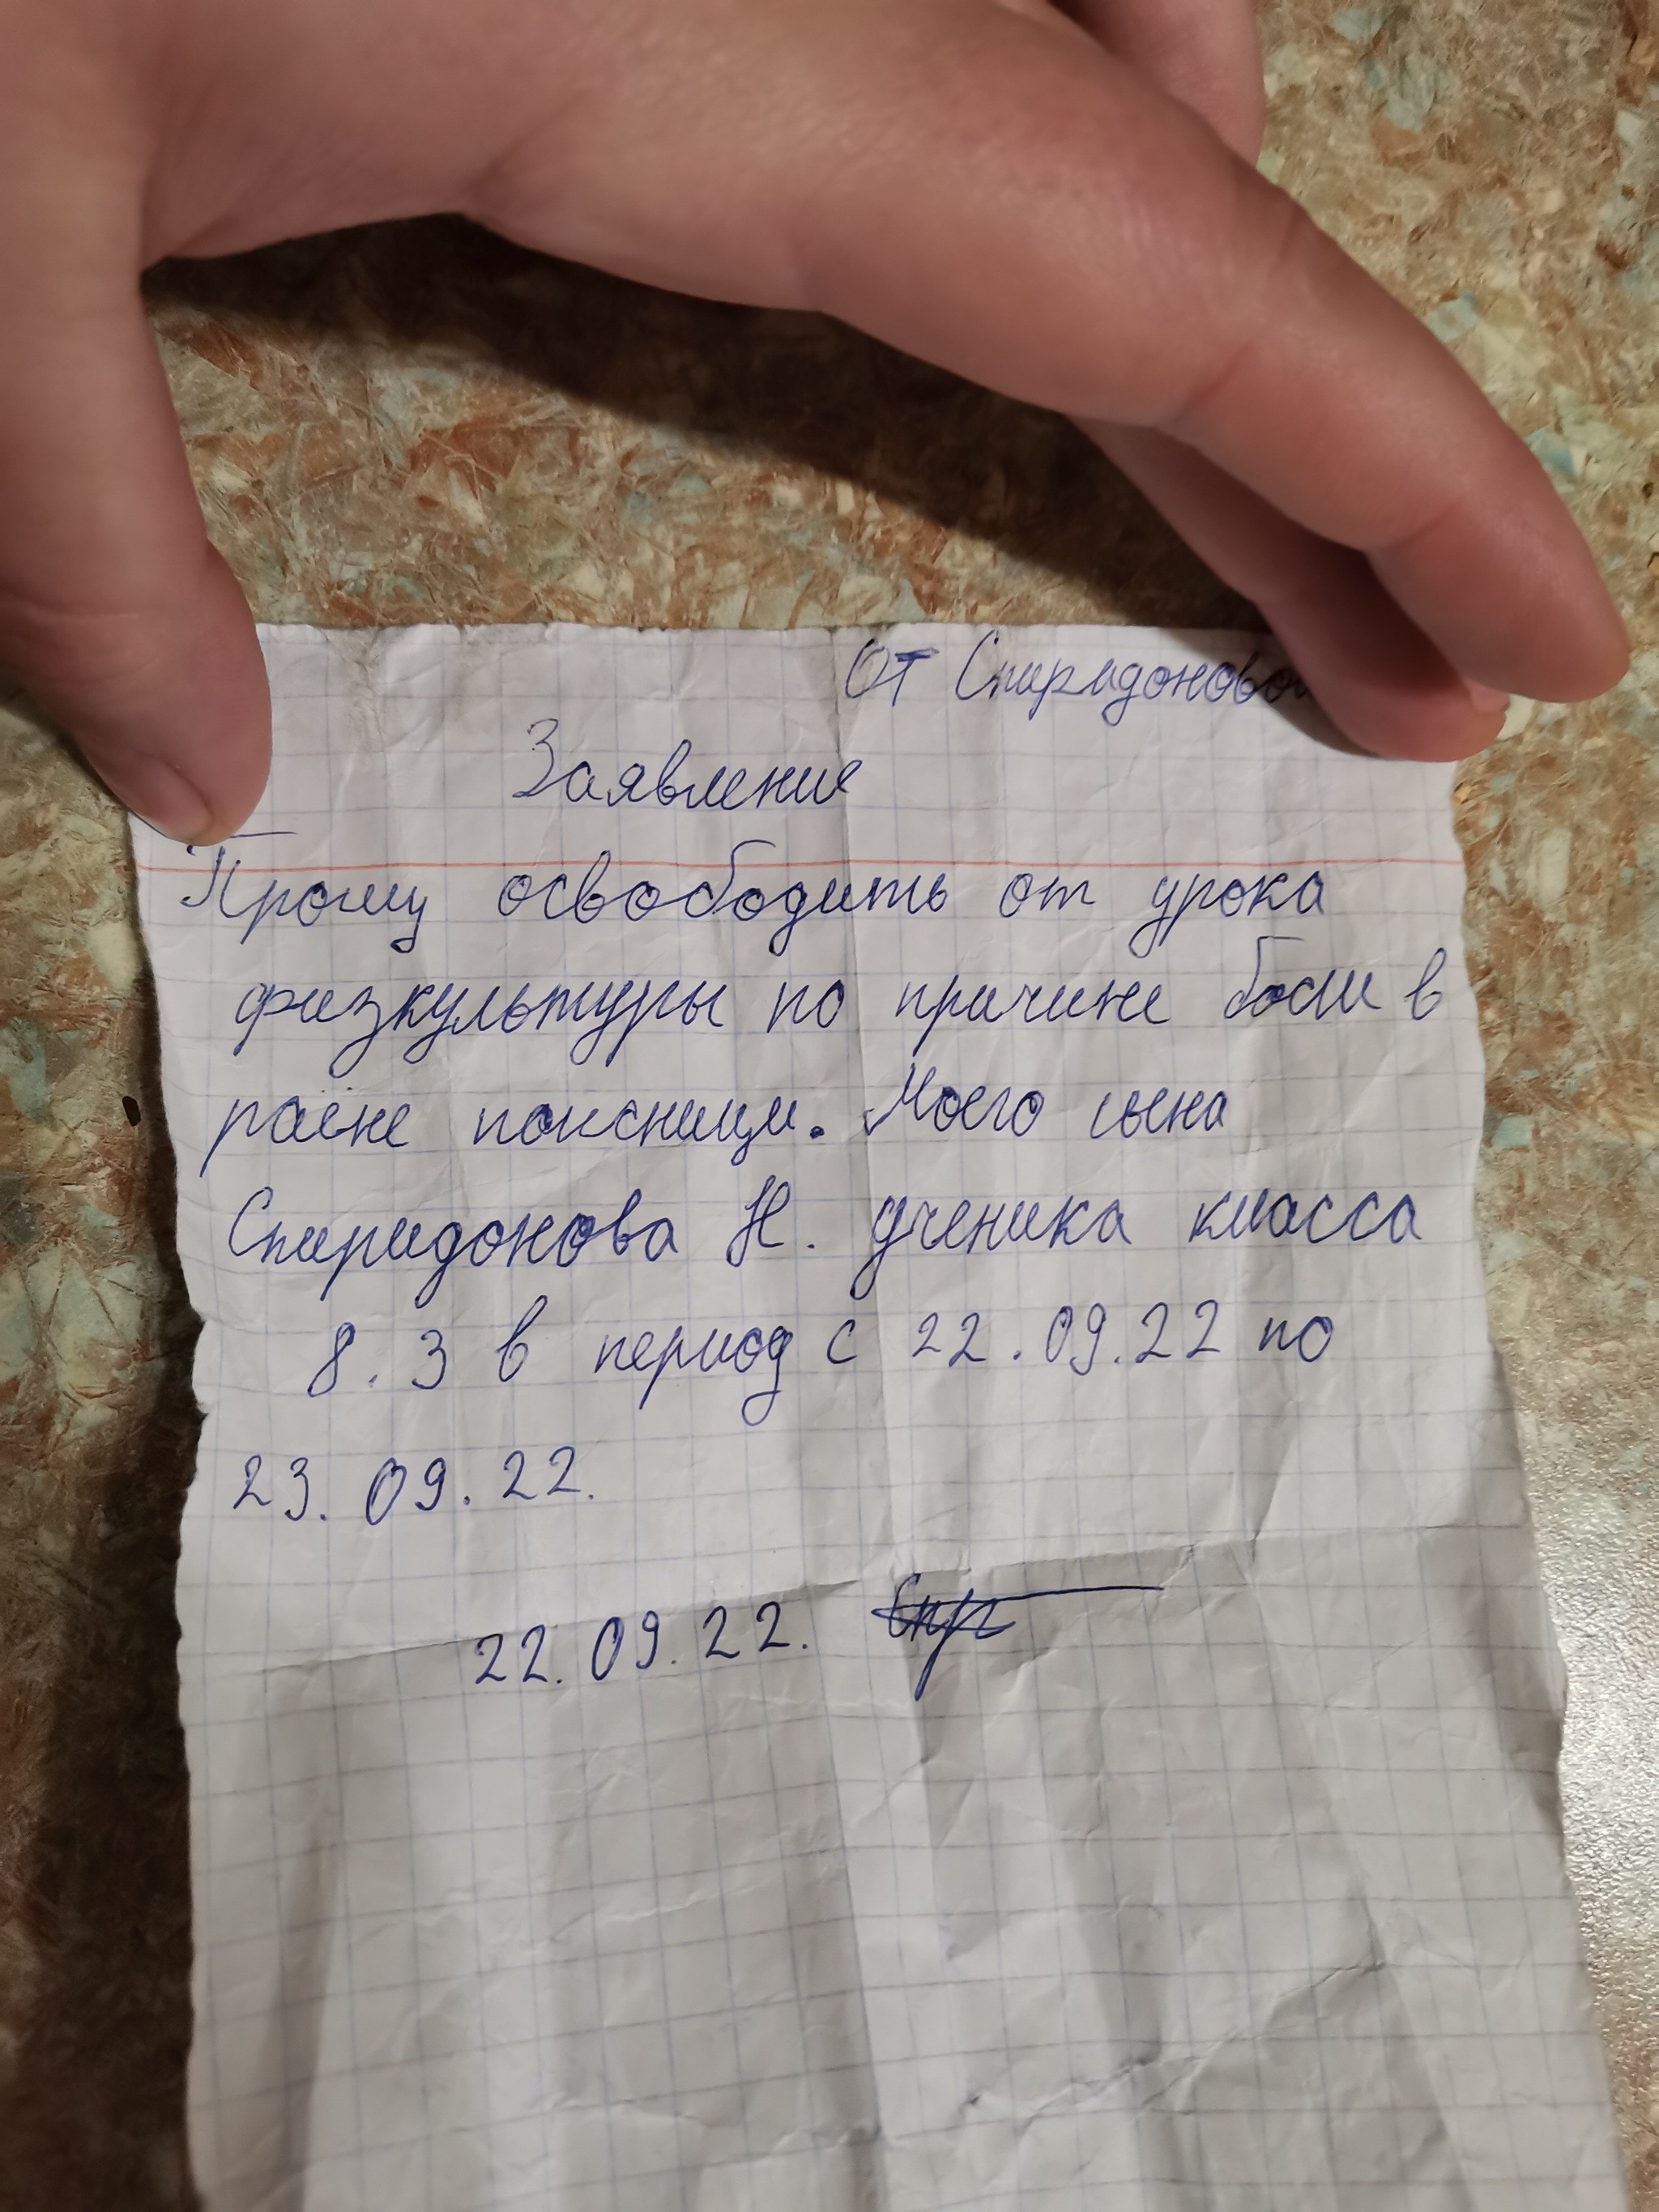 От Спиридоновой
Заявление
Прошу освободить от урока
физкультуры по причине боли в
раене поисницы. Моего сына
Спиридонова Н. ученика класса
8.3 в период с 22.09.22 по
23.09.22.
22.09.22. Спр